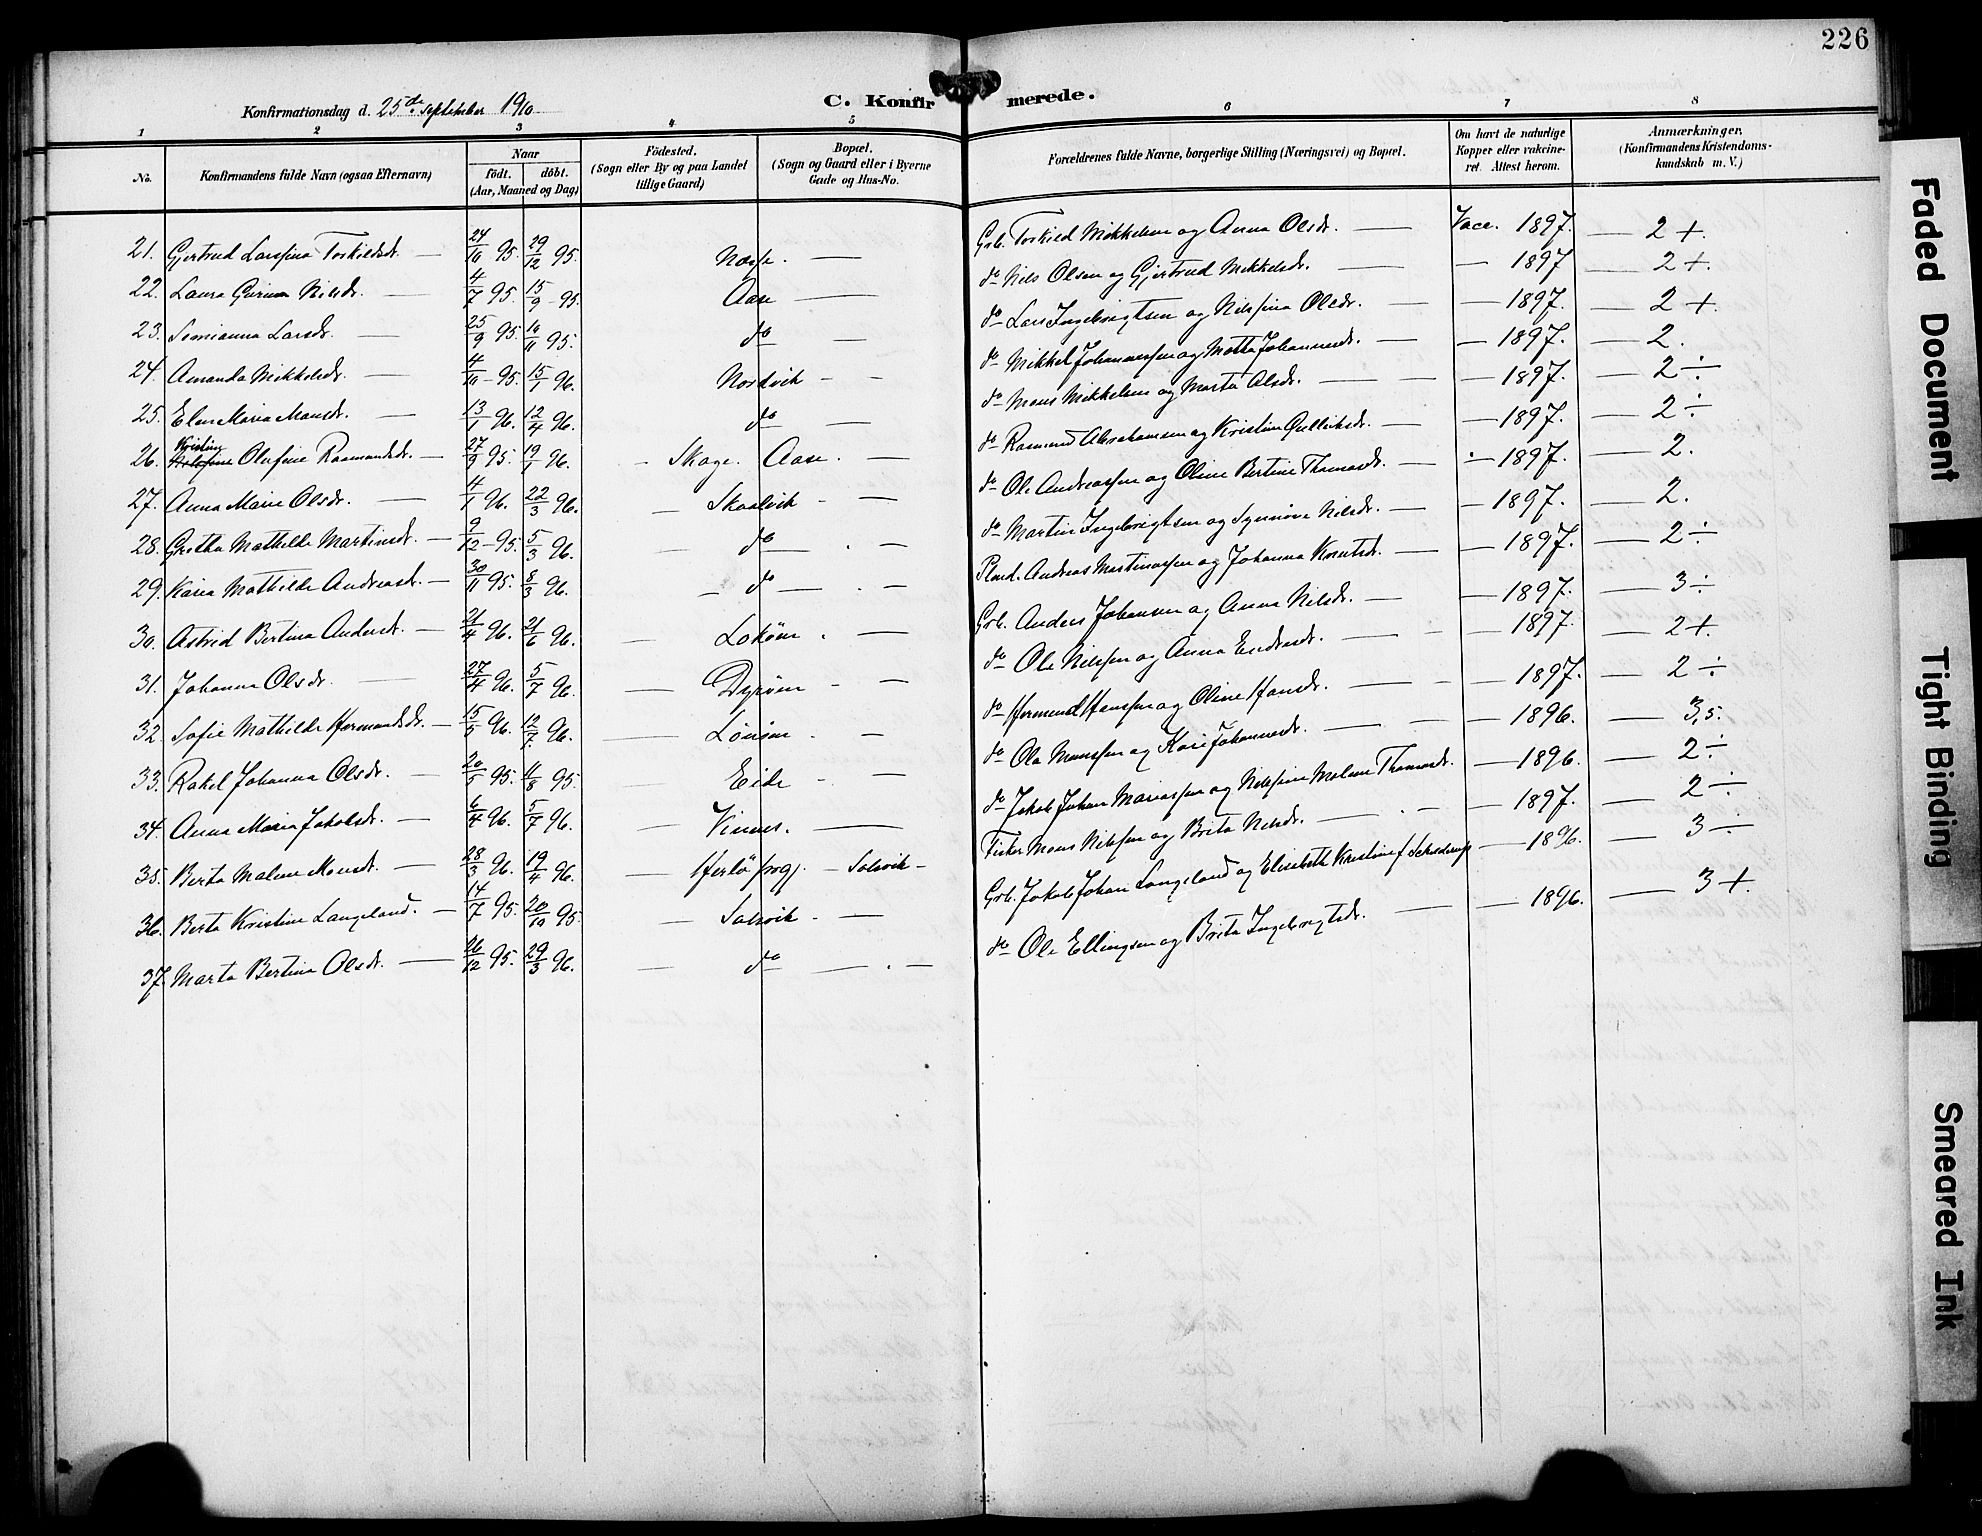 226
Konfirmationsdag d. 25de september 1910
C. Konfirmerede.
1 2 3 4 5 6 7 8
No. Konfirmandens fulde Navn (ogsaa Efternavn) Naar födt. döbt. (Aar, Maaned og Dag) Födested. (Sogn eller By og paa Landet tillige Gaard) Bopæl. (Sogn og Gaard eller i Byerne Gade og Hus-No. Forældrenes fulde Navne, borgerlige Stilling (Næringsvei) og Bopæl. Om havt de naturlige Kopper eller vakcineret. Attest herom. Anmærkninger, (Konfirmandens Kristendomskundskab m. V.)
21. Gjertrud Larsfina Torkildsdt. — 24/10 95. 29/12 95. Næsse. — Grb. Torkild Mikkelsen og Anna Olsdr. — Vacc. 1897. — 2 +.
22. Laura Nilsdr. — 4/7 95. 15/9 - 95. Aase — do Nils Olsen og Gjertrud Mikkelsdr. — — 1897 — 2 +.
23. Larsdr. — 25/9 95. 10/11 95. do — do Lars Ingebrigtsen og Nilsfina Olsdr. — — 1897. — 2 +
24. Amanda Mikkelsdr. — 4/10 - 95. 15/1 96. Nordvik — do Mikkel Johannessen og Johannesdr. — — 1897. — 2.
25. Elen Maria Monsdr. — 13/1 96. 12/4 96. do — do Mons Mikkelsen og Marta Olsdr. — — 1897. — 2 ÷
26. Kristine Olufine Rasmundsdr. — 27/9 95. 19/1 96. — Skage. Aase. — do Rasmund Abrahamsen og Kristine Gulliksdr. — — 1897. — 2 ÷
27. Anna Marie Olsdr. — 4/1 96. 22/3 96. — Skaalvik — do Ole Andreassen og Oline Bertine Thomasdr. — — 1897. — 2.
28. Gretha Mathilde Martinsdt. — 9/12 - 95. 5/3 96. — do — do Martin Ingebrigtsen og Synnöve Nilsdr. — — 1897. — 2.
29. Karia Mathilde Andreasdt. — 30/11 95. 8/3 96. — do — Andreas Martinassen og Johanna Knutsdr. — — 1897. — 2 ÷
30. Astrid Bertina Andersdt. — 21/4 96. 21/6 96. — Loköen — Grb. Anders Johansen og Anna Nilsdr. — — 1897. — 3 ÷
31. Johanna Olsdr. — 27/4 96. 5/7 96. — Dyröen — do Ole Nilssen og Anna Endresdt. — — 1897. — 2 +.
32. Sofie Mathilde Hermundsdr. — 15/5 96. 12/7 96. — Lönöen — do Hermund Hanssen og Oline Hansdr. — — 1897. — 2 ÷
33. Rakel Johanna Olsdr. — 20/5 95. 11/8 95. Eide — do Ole Monssen og Kari Johannesdr. — — 1896. — 3,5.
34. Anna Maria Jakobsdr. — 6/4 96. 5/7 96. — Vinnes. — do Jakob Johan Mariassen og Nilsfine Malene Thomasdr. — 1896. — 2 ÷
35. Berta Malene Monsdt. — 28/3 96. 19/4 96. — Herlö prgj. — Solsvik — Fisker Mons Nilssen og Brita Nilsdr. — — 1897. — 2 ÷
36. Berta Kristine Langeland. — 14/7 95. 20/10 95. — Solsvik — Grb. Jakob Johan Langeland og Elisabeth Kristine f. — 1896. — 3 ÷
37. Marta Bertina Olsdt. — 26/12 95. 29/3 96. — do — do Ole Ellingsen og Brita Ingebrigtsdr. — — 1896. — 3 +.
Faded Document
Tight Binding
Smeared Ink